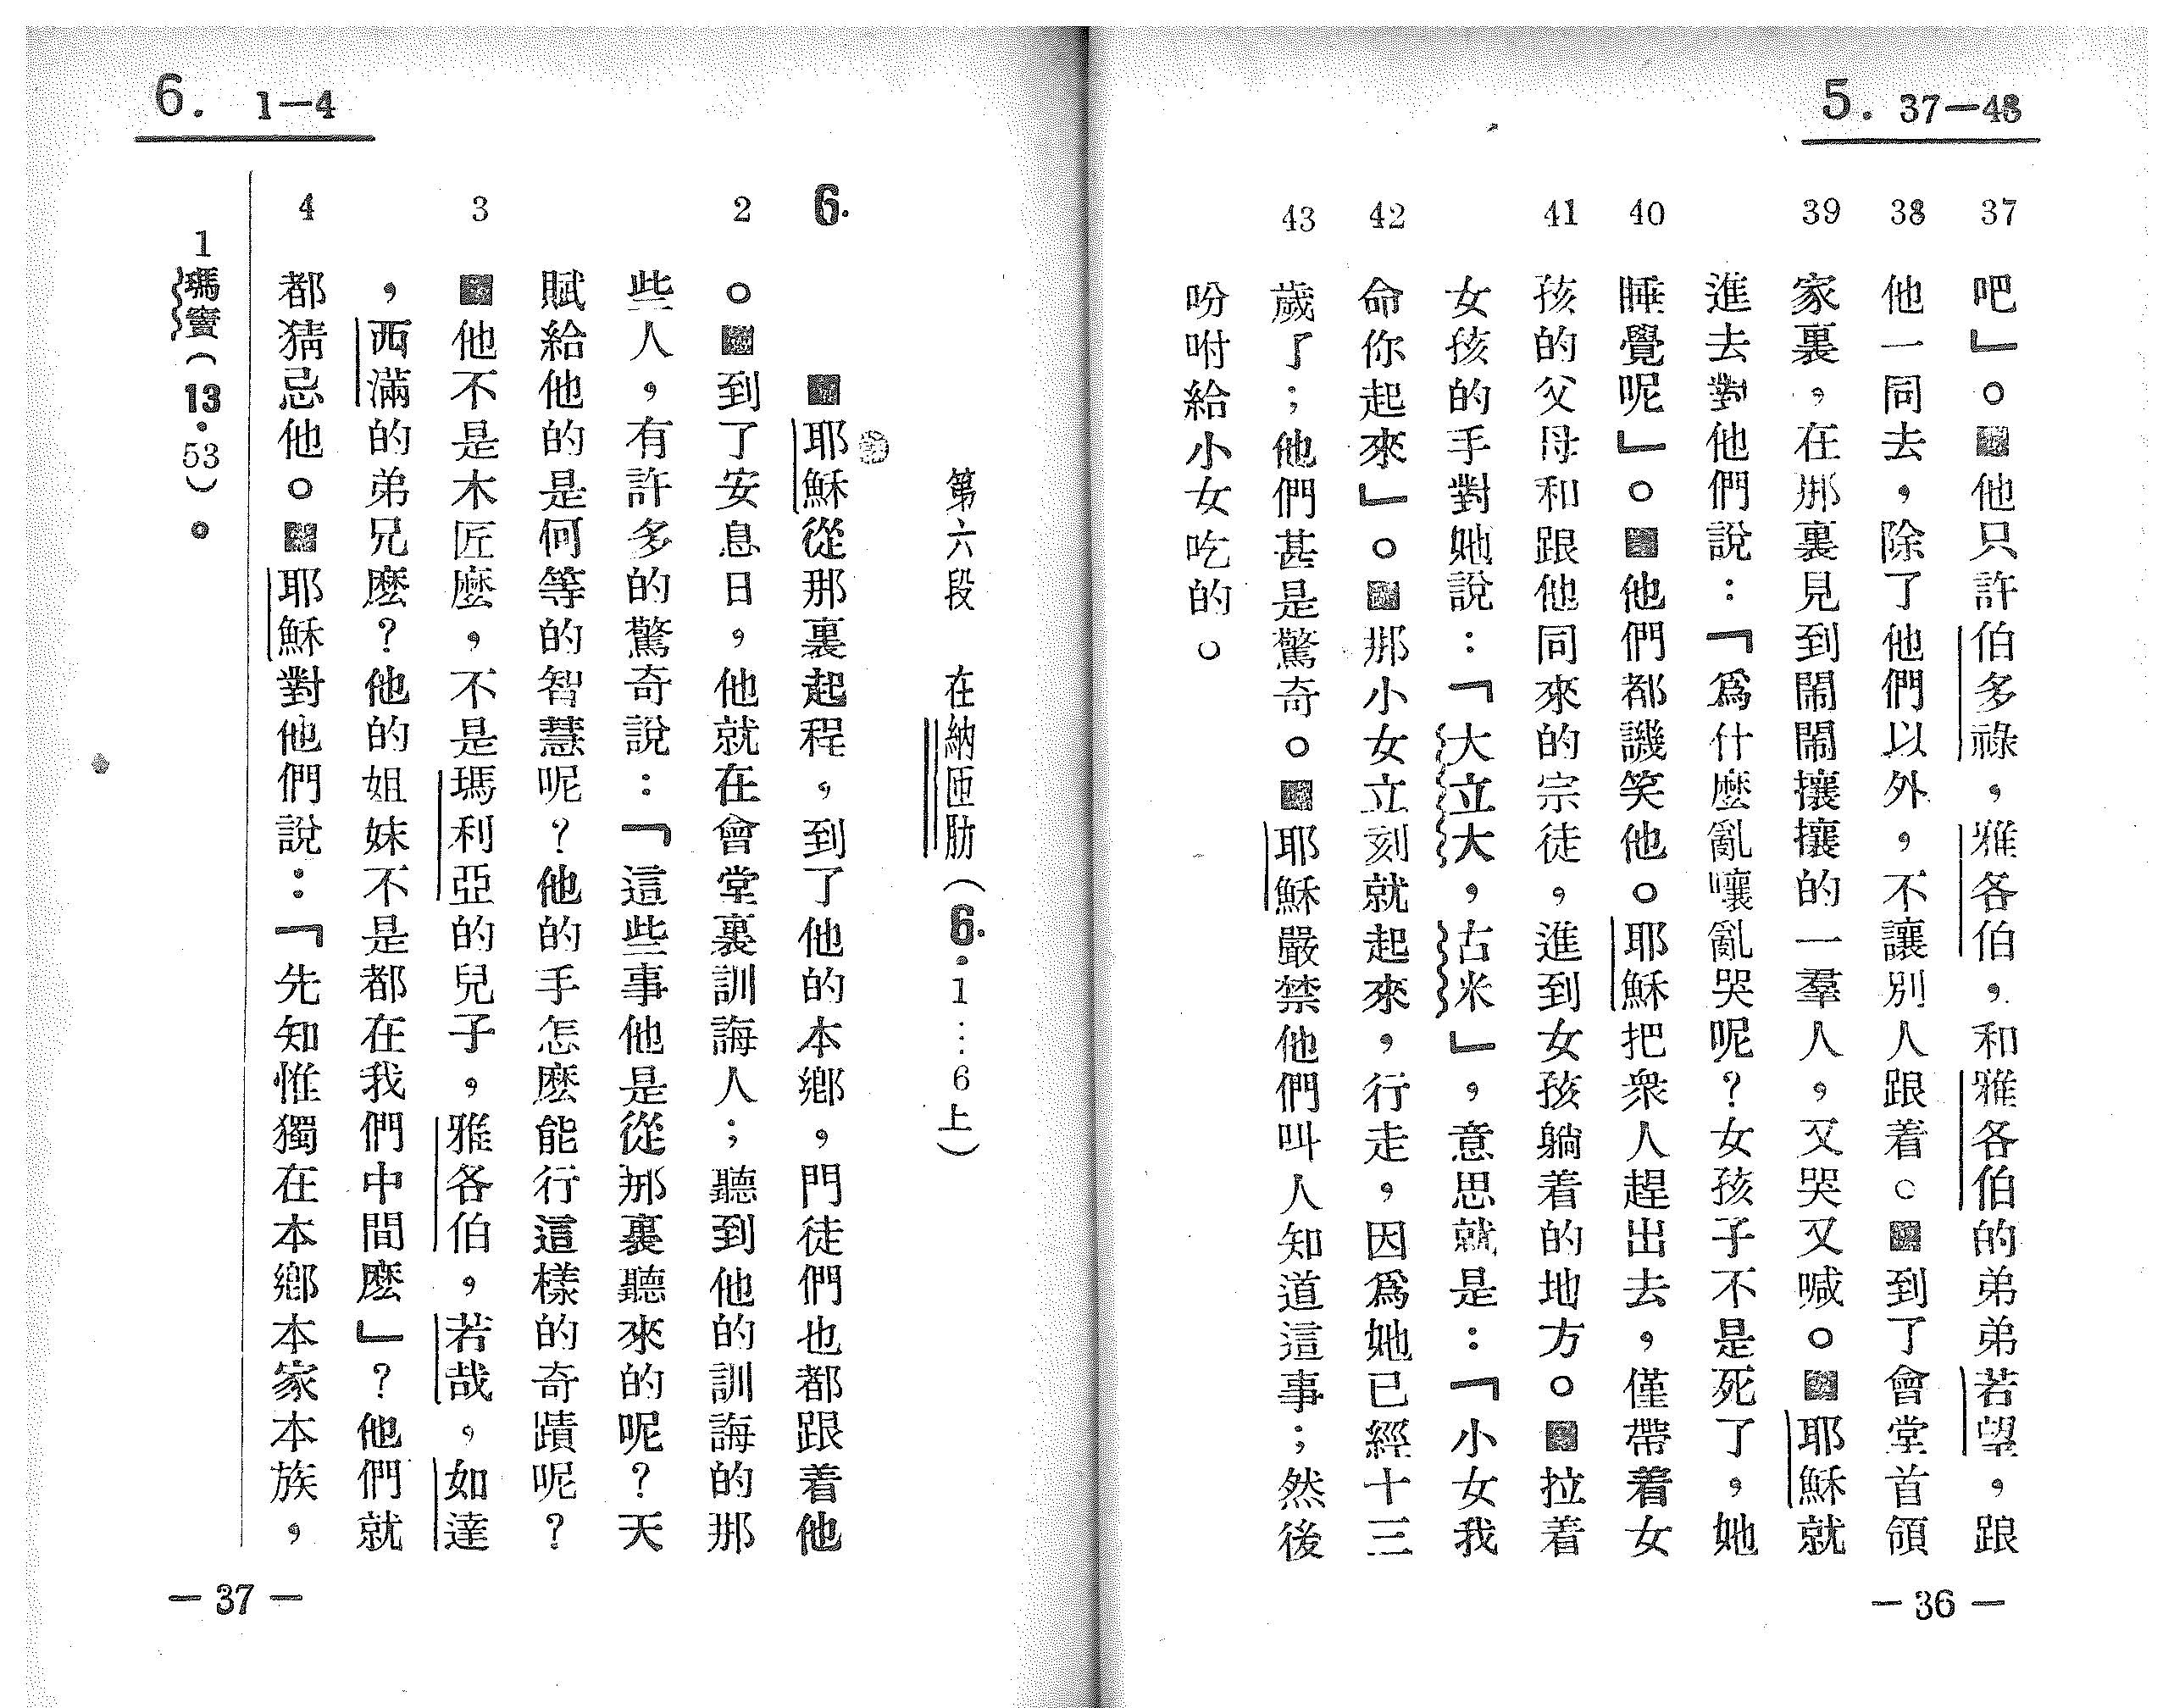 5. 37—43
37 38 39 40 41 42 43
吧」。■他只許伯多祿，雅各伯，和雅各伯的弟弟若望，跟
他一同去，除了他們以外，不讓別人跟着。■到了會堂首領
家裏，在那裏見到鬧鬧攘攘的一羣人，又哭又喊。■耶穌就
進去對他們說：「爲什麼亂嚷亂哭呢？女孩子不是死了，她
睡覺呢」。■他們都譏笑他。耶穌把衆人趕出去，僅帶着女
孩的父母和跟他同來的宗徒，進到女孩躺着的地方。■拉着
女孩的手對她說：「大立大，古米」，意思就是：「小女我
命你起來」。■那小女立刻就起來，行走，因爲她已經十三
歲了；他們甚是驚奇。■耶穌嚴禁他們叫人知道這事；然後
吩咐給小女吃的。
— 36 —
6. 1—4
第六段 在納匝肋（6.·1…6上）
6. 2 3 4
■耶穌從那裏起程，到了他的本鄉，門徒們也都跟着他
。■到了安息日，他就在會堂裏訓誨人；聽到他的訓誨的那
些人，有許多的驚奇說：「這些事他是從那裏聽來的呢？天
賦給他的是何等的智慧呢？他的手怎麽能行這樣的奇蹟呢？
■他不是木匠麽，不是瑪利亞的兒子，雅各伯，若哉，如達
，西滿的弟兄麽？他的姐妹不是都在我們中間麽」？他們就
都猜忌他。■耶穌對他們說：「先知惟獨在本鄉本家本族，
1瑪竇（13·53）。
— 37 —